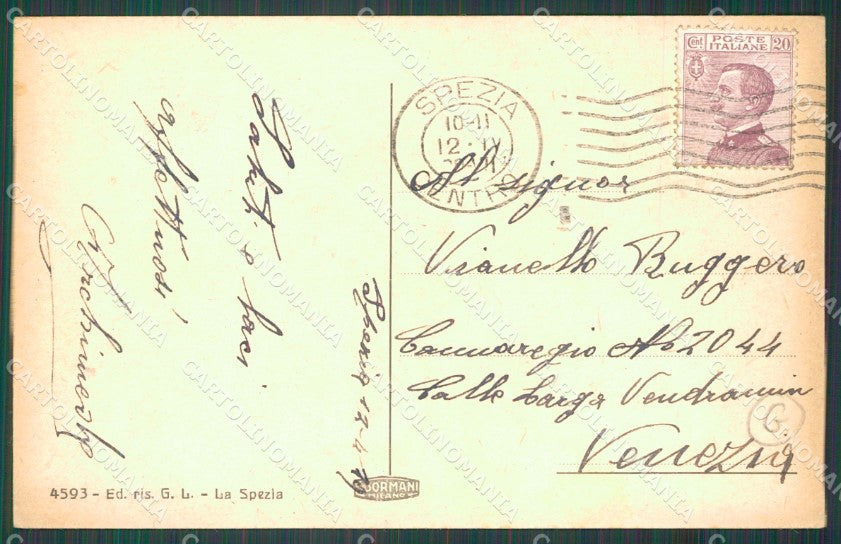 Cent POSTE ITALIANE 20
SPEZIA
10-11
12·IV
CENTRO
All signor
Vianello Ruggero
Cannaregio No 2044
Calle Larga Vendramin
Venezia
6
Spezia 12-4-
Saluti e baci
affettuosi
4593 - Ed. ris. G. L. - La Spezia
DORMANI
MILANO
CARTOLINOMANIA